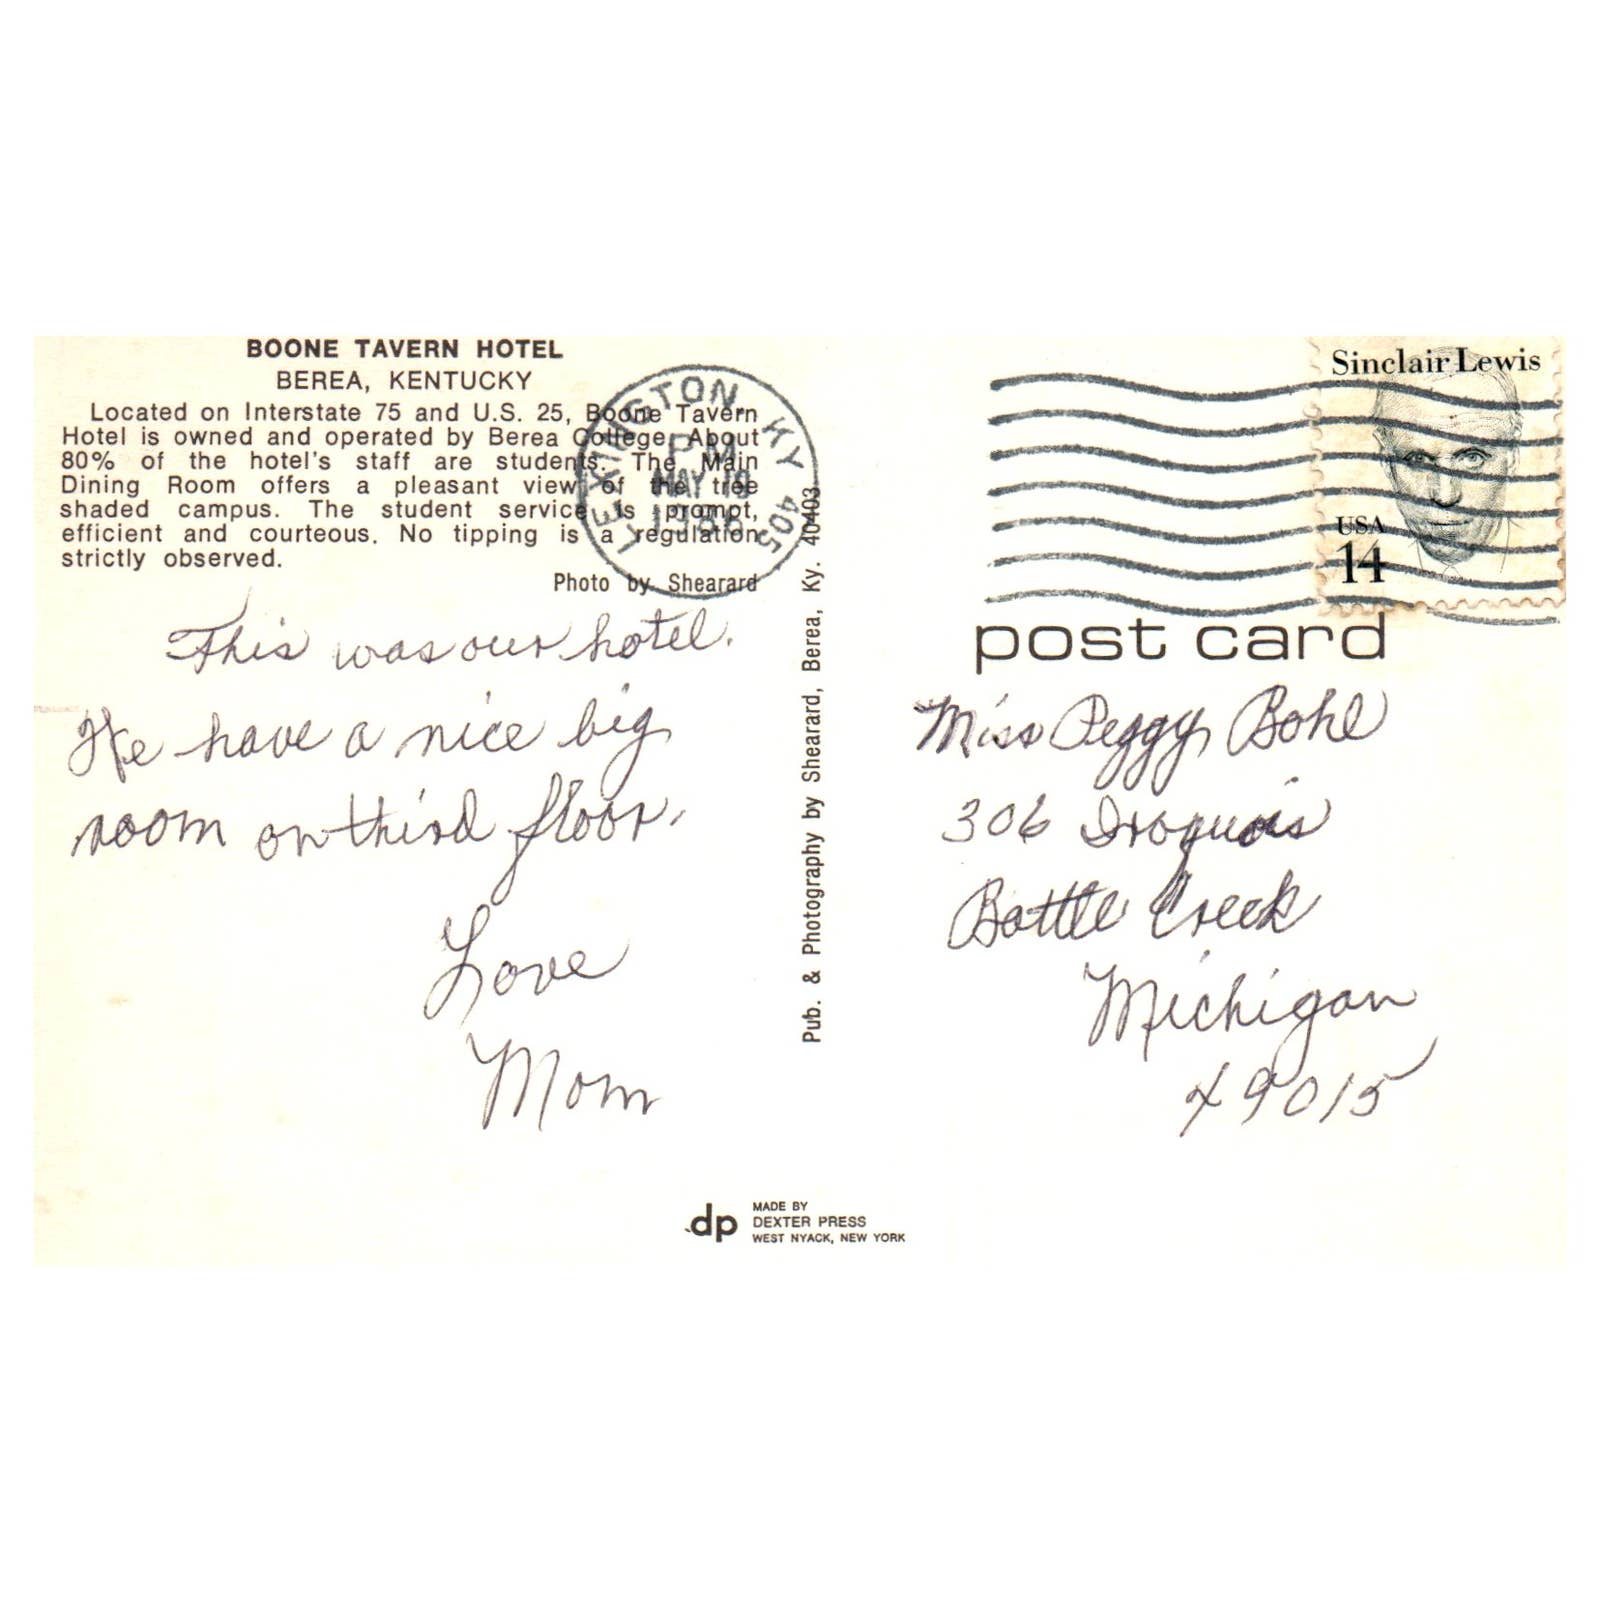 BOONE TAVERN HOTEL
BEREA, KENTUCKY
Located on Interstate 75 and U.S. 25, Boone Tavern
Hotel is owned and operated by Berea College. About
80% of the hotel's staff are students. The Main
Dining Room offers a pleasant view of the tree
shaded campus. The student service is prompt,
efficient and courteous. No tipping is a regulation
strictly observed.
Photo by Shearard
LEXINGTON KY 405
PM
MAY 19
1986
This was our hotel.
We have a nice big
room on third floor.
Love
Mom
Pub. & Photography by Shearard, Berea, Ky. 40403
Sinclair Lewis
USA
14
post card
Miss Peggy Bohl
306 Iroquois
Battle Creek
Michigan
49015
dp
MADE BY
DEXTER PRESS
WEST NYACK, NEW YORK